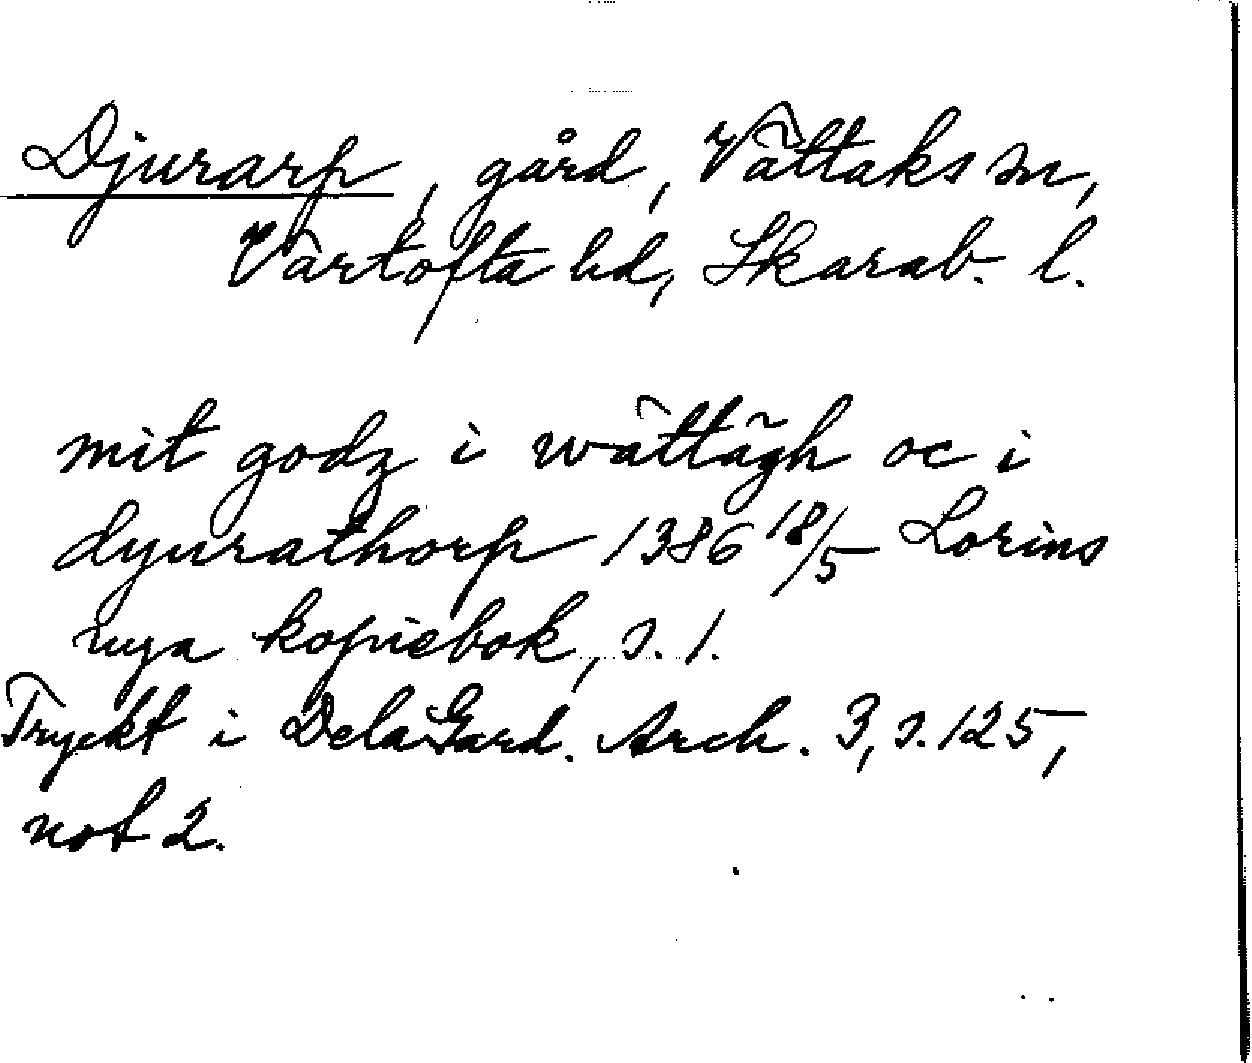 Djurarp, gård, Vättaks sn,
Vartofta hd, Skarab. l.
mit godz i wättãgh oc i
dyurathorp 1386 18/5 Lorins
nya kopiebok, s. 1.
Tryckt i DelaGard. Arch. 3, s. 125,
not 2.